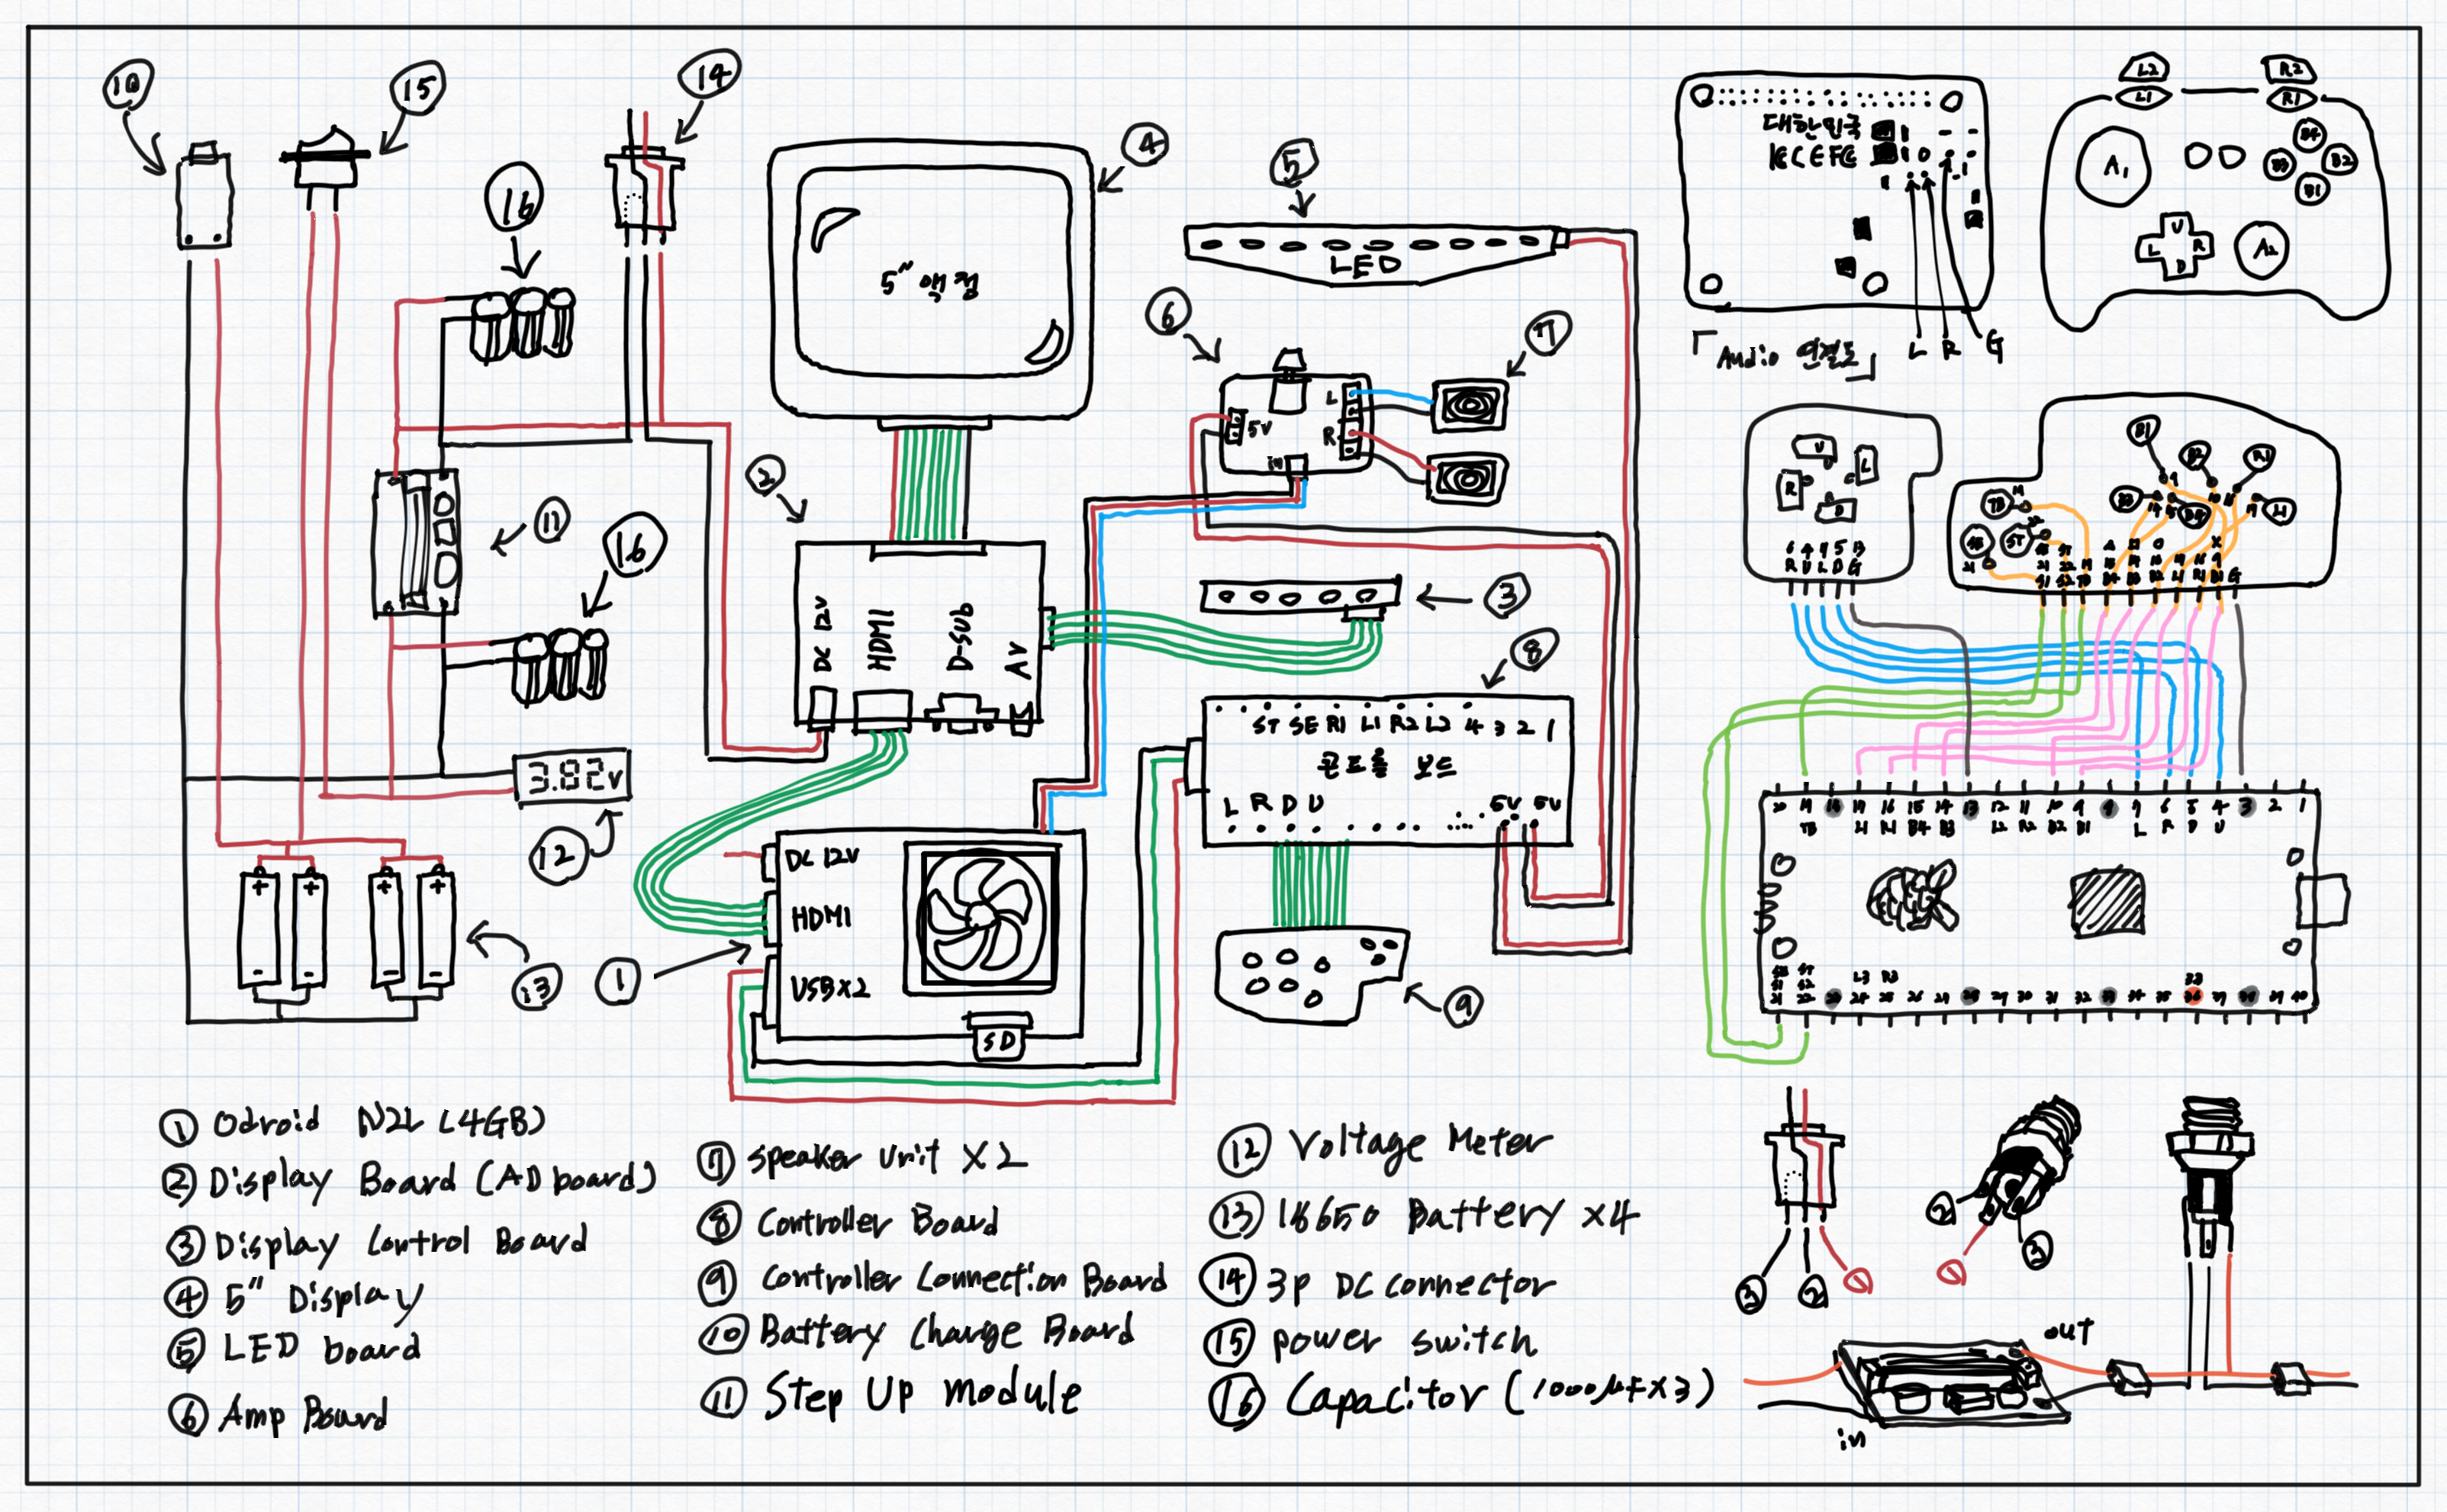 10
15
14
16
4
5
5" 액정
LED
6
7
L
5V
R
in
2
11
16
DC 12V
HDMI
D-SUB
AV
3
8
ST SE R1 L1 R2 L2 4 3 2 1
콘트롤 보드
L R D U
5V 5V
3.82V
12
DC 12V
HDMI
USBX2
SD
1
13
9
대한민국
KC FC
「Audio 연결도」
L R G
L2
R2
L1
R1
A1
B4
B3
B2
B1
U
L
R
D
A2
U
L
R
D
6 4 7 5 13
R U L D G
B1
B2
R1
B3
B4
L1
TB
ST
20 19 18 17 16 15 14 13 12 11 10 9 8 7 6 5 4 3 2 1
TB L1 R1 B4 B3 L2 R2 B2 B1 L R D U
L3 R3
3.3
① Odroid N2L (4GB)
② Display Board (AD board)
③ Display Control Board
④ 5" Display
⑤ LED board
⑥ Amp Board
⑦ Speaker Unit X2
⑧ Controller Board
⑨ Controller Connection Board
⑩ Battery Charge Board
⑪ Step Up module
⑫ Voltage Meter
⑬ 18650 Battery X4
⑭ 3p DC connector
⑮ power switch
⑯ Capacitor (1000μF X3)
3 2 1
2
1
3
out
in